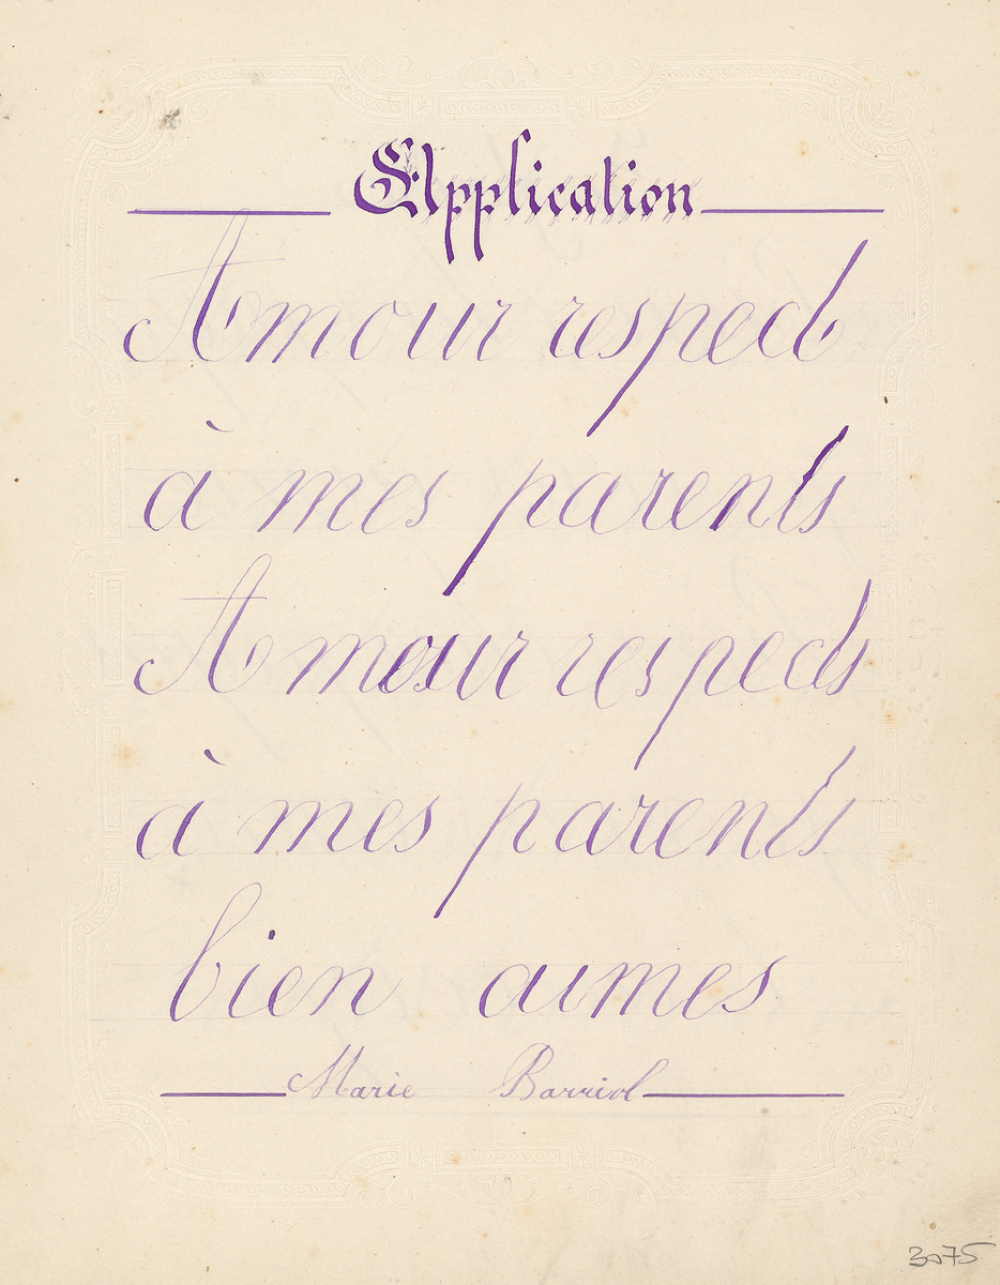 Application
Amour respect
à mes parents
Amour respects
à mes parents
bien aimes
Marie Barriol
3075